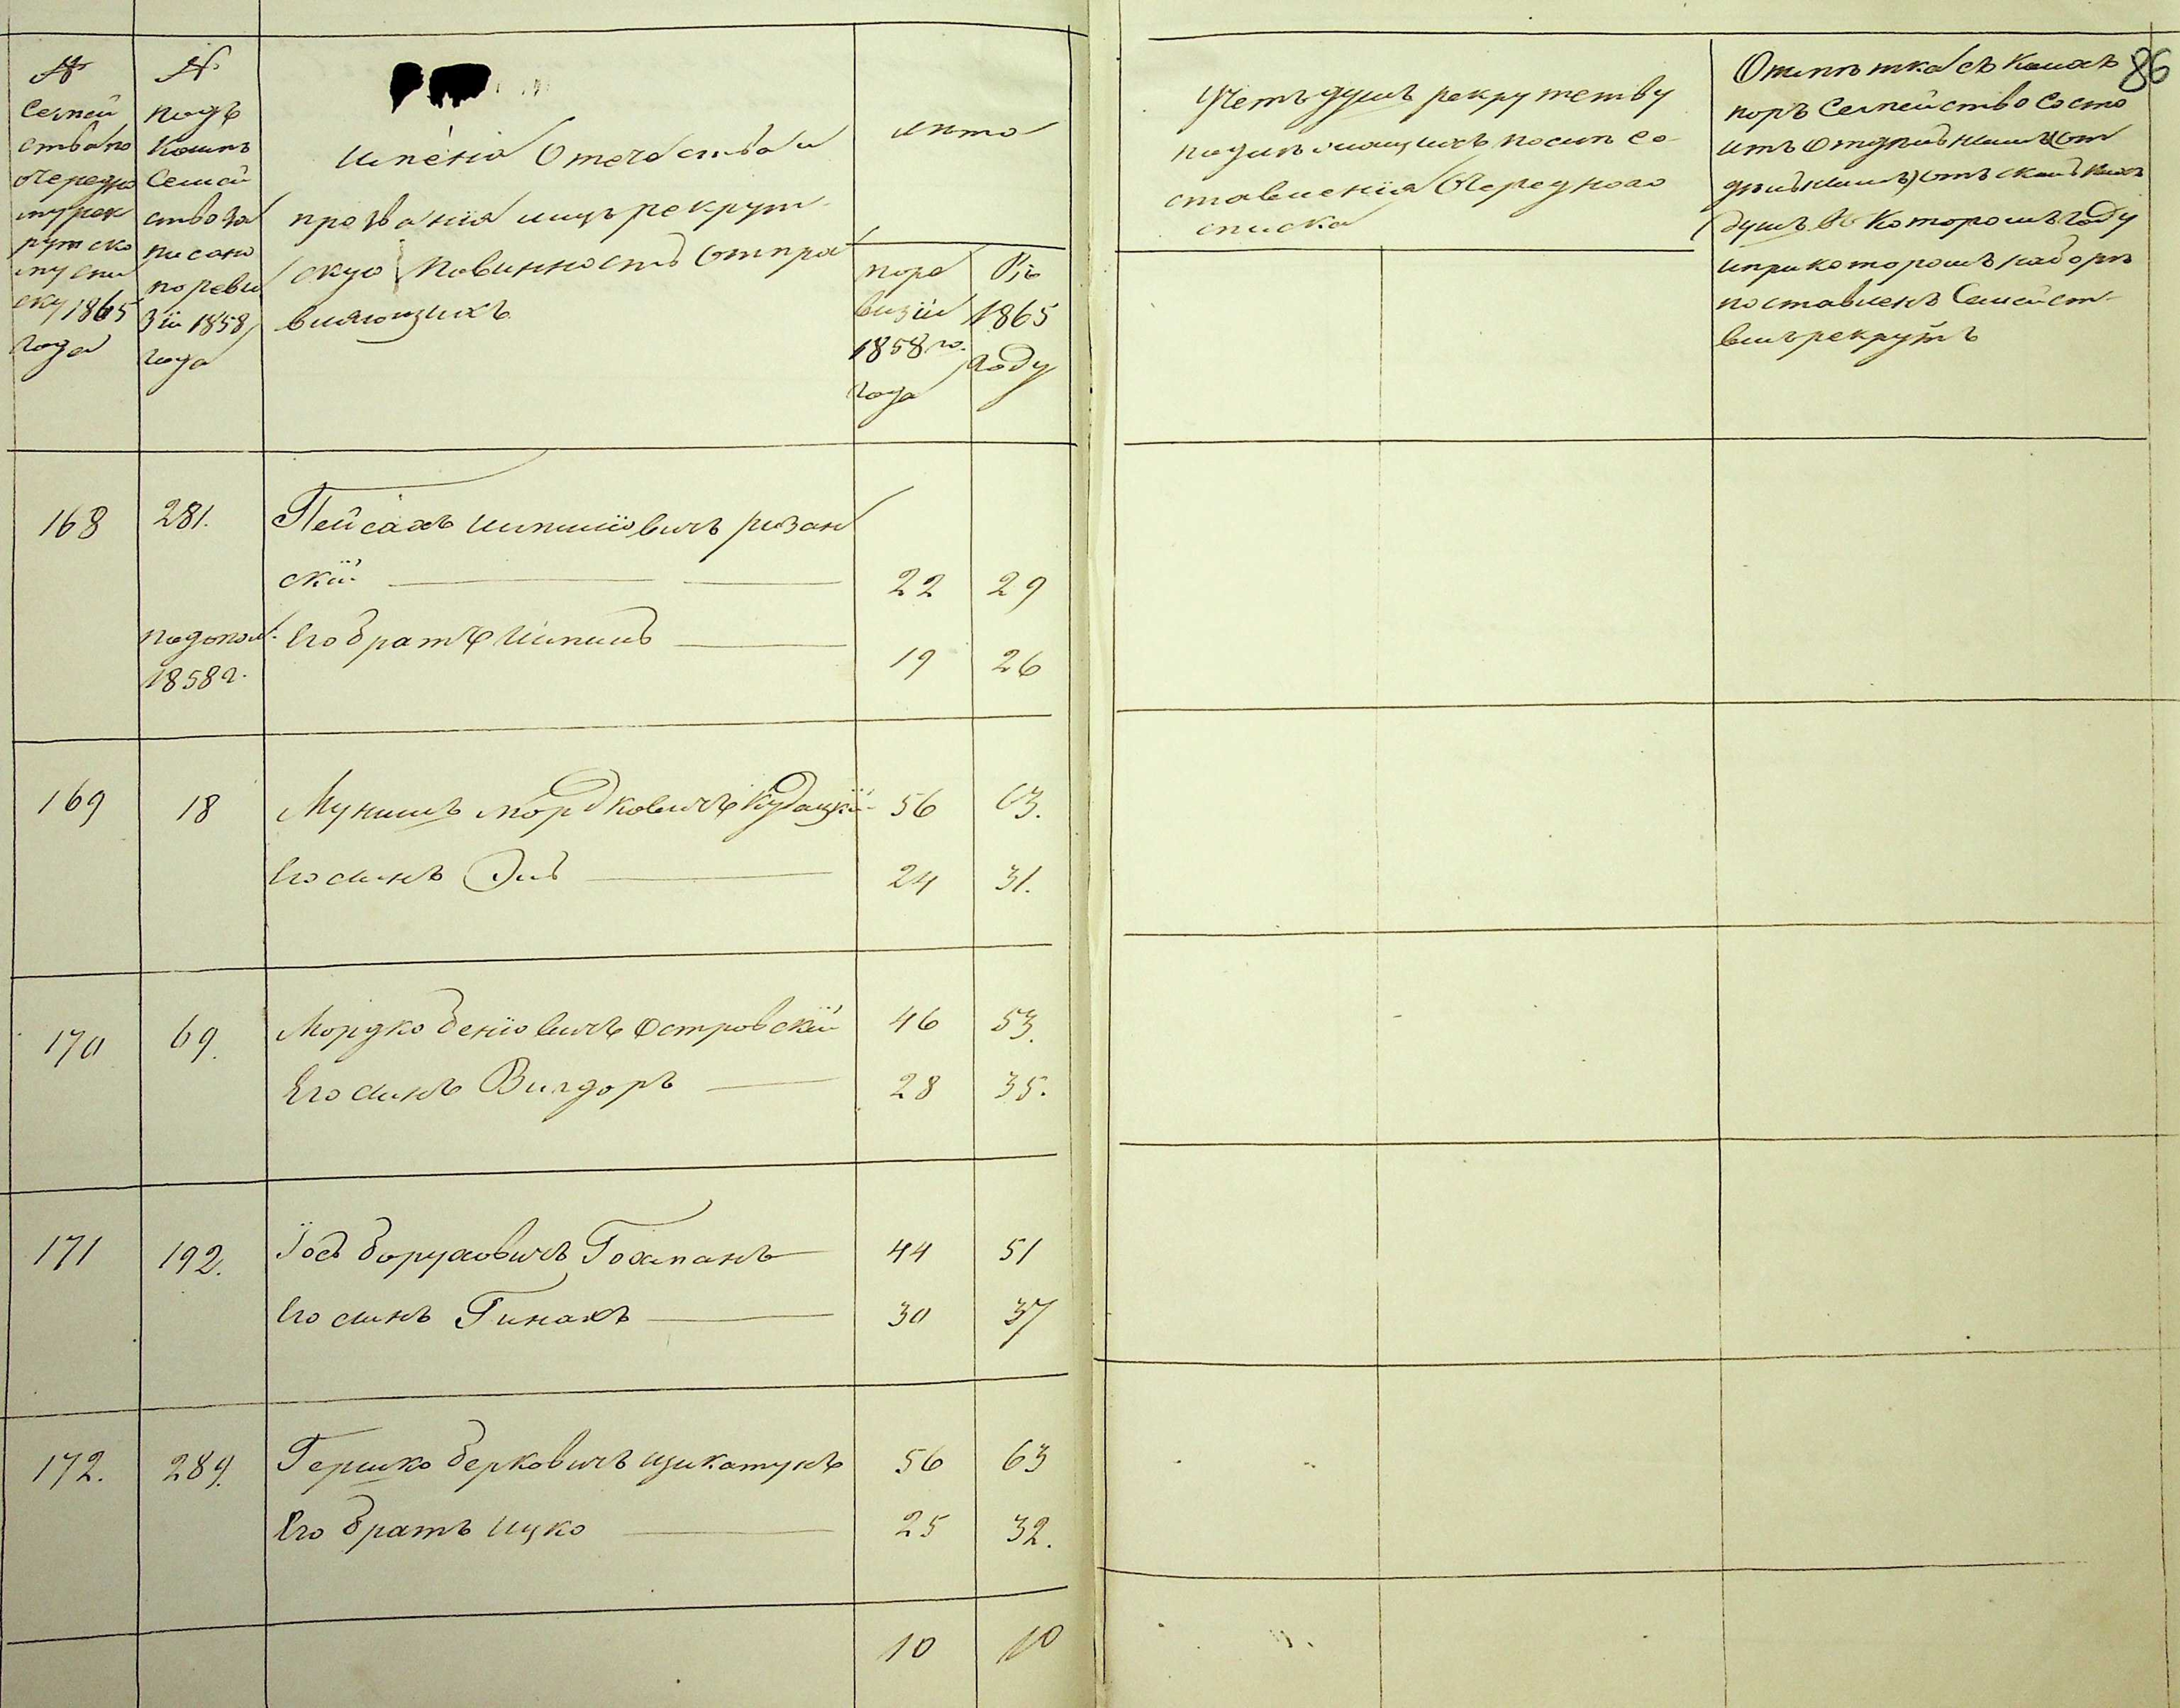 №
Семей
ства по
очередно
му рек
рутско
му спи
ску 1865
года
№
подъ
коимъ
Семей
ство за
писано
по реви
зіи 1858
года
Имена Отечества и
прозванія лицъ рекрут
скую повинность отпра
вляющихъ
лѣта
по ре
визіи
1858 го
года
Въ
1865
году
Учетъ душъ рекрутству
подлежащихъ после со-
ставленія Очереднаго
списка
Отмѣтка съ какихъ
поръ Семейство состо
итъ отдѣльнымъ (от
дѣльнымъ) отъ
душъ въ которомъ году
и при которомъ наборѣ
поставленъ Семейст-
вомъ рекрутъ
86
168 281. Пейсахъ Шліовичъ ризан
скій 22 29
подопол. Его братъ 19 26
1858 г.
169 18 Мунишъ Мордковичъ Кудацкій 56 63.
Его сынъ Эль 24 31.
170 69. Мордко Беніовичъ Островскій 46 53.
Его сынъ Вигдоръ 28 35.
171 192. Іось Боруховичъ Гохманъ 44 51
Его сынъ Гинахъ 30 37
172. 289. Гершко Берковичъ Цикатунъ 56 63
Его братъ Ицко 25 32.
10 10